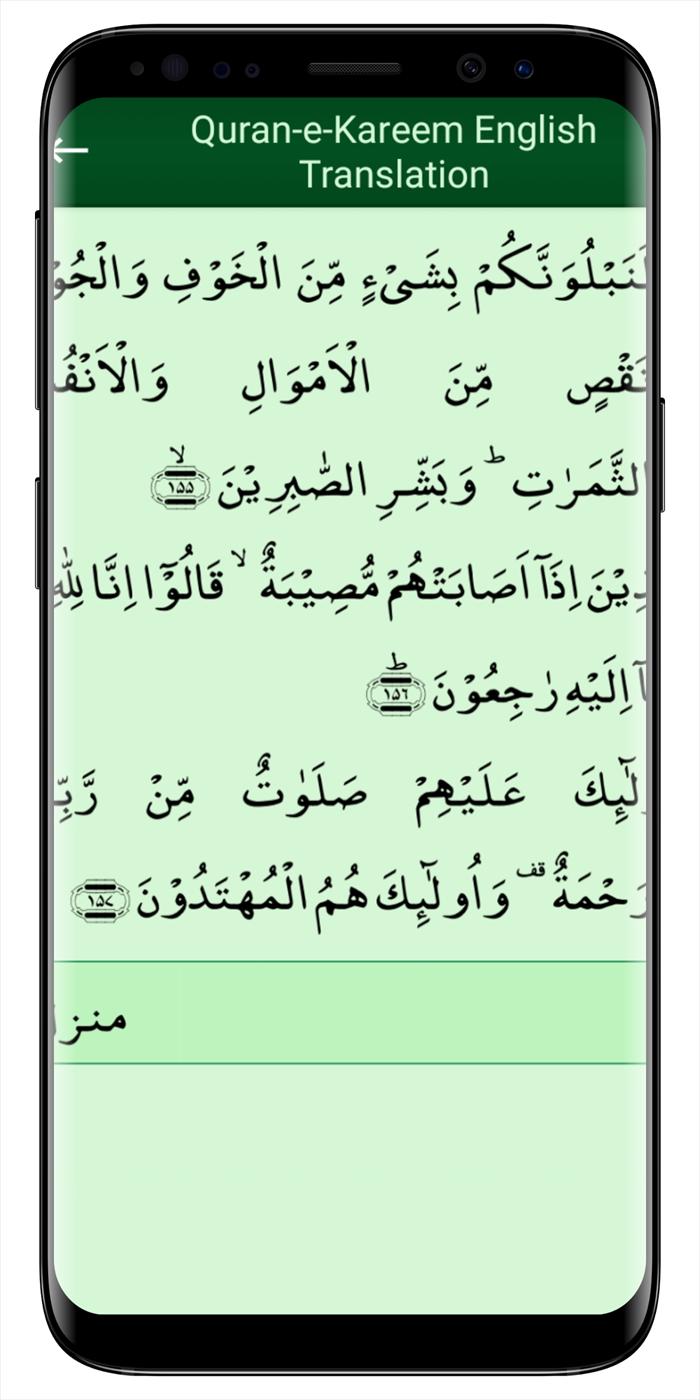 Quran-e-Kareem English
Translation
لَنَبْلُوَنَّكُمْ بِشَیْءٍ مِّنَ الْخَوْفِ وَالْجُوْ
نَقْصٍ مِّنَ الْاَمْوَالِ وَالْاَنْفُ
الثَّمَرٰتِ ؕ وَبَشِّرِ الصّٰبِرِيْنَ ۙ ۱۵۵
ذِيْنَ اِذَاۤ اَصَابَتْهُمْ مُّصِيْبَةٌ ۙ قَالُوْۤا اِنَّا لِلّٰهِ
اۤ اِلَيْهِ رٰجِعُوْنَ ؕ ۱۵۶
ولٰٓئِكَ عَلَيْهِمْ صَلَوٰتٌ مِّنْ رَّبِّ
رَحْمَةٌ قف وَاُولٰٓئِكَ هُمُ الْمُهْتَدُوْنَ ۱۵۷
منزل